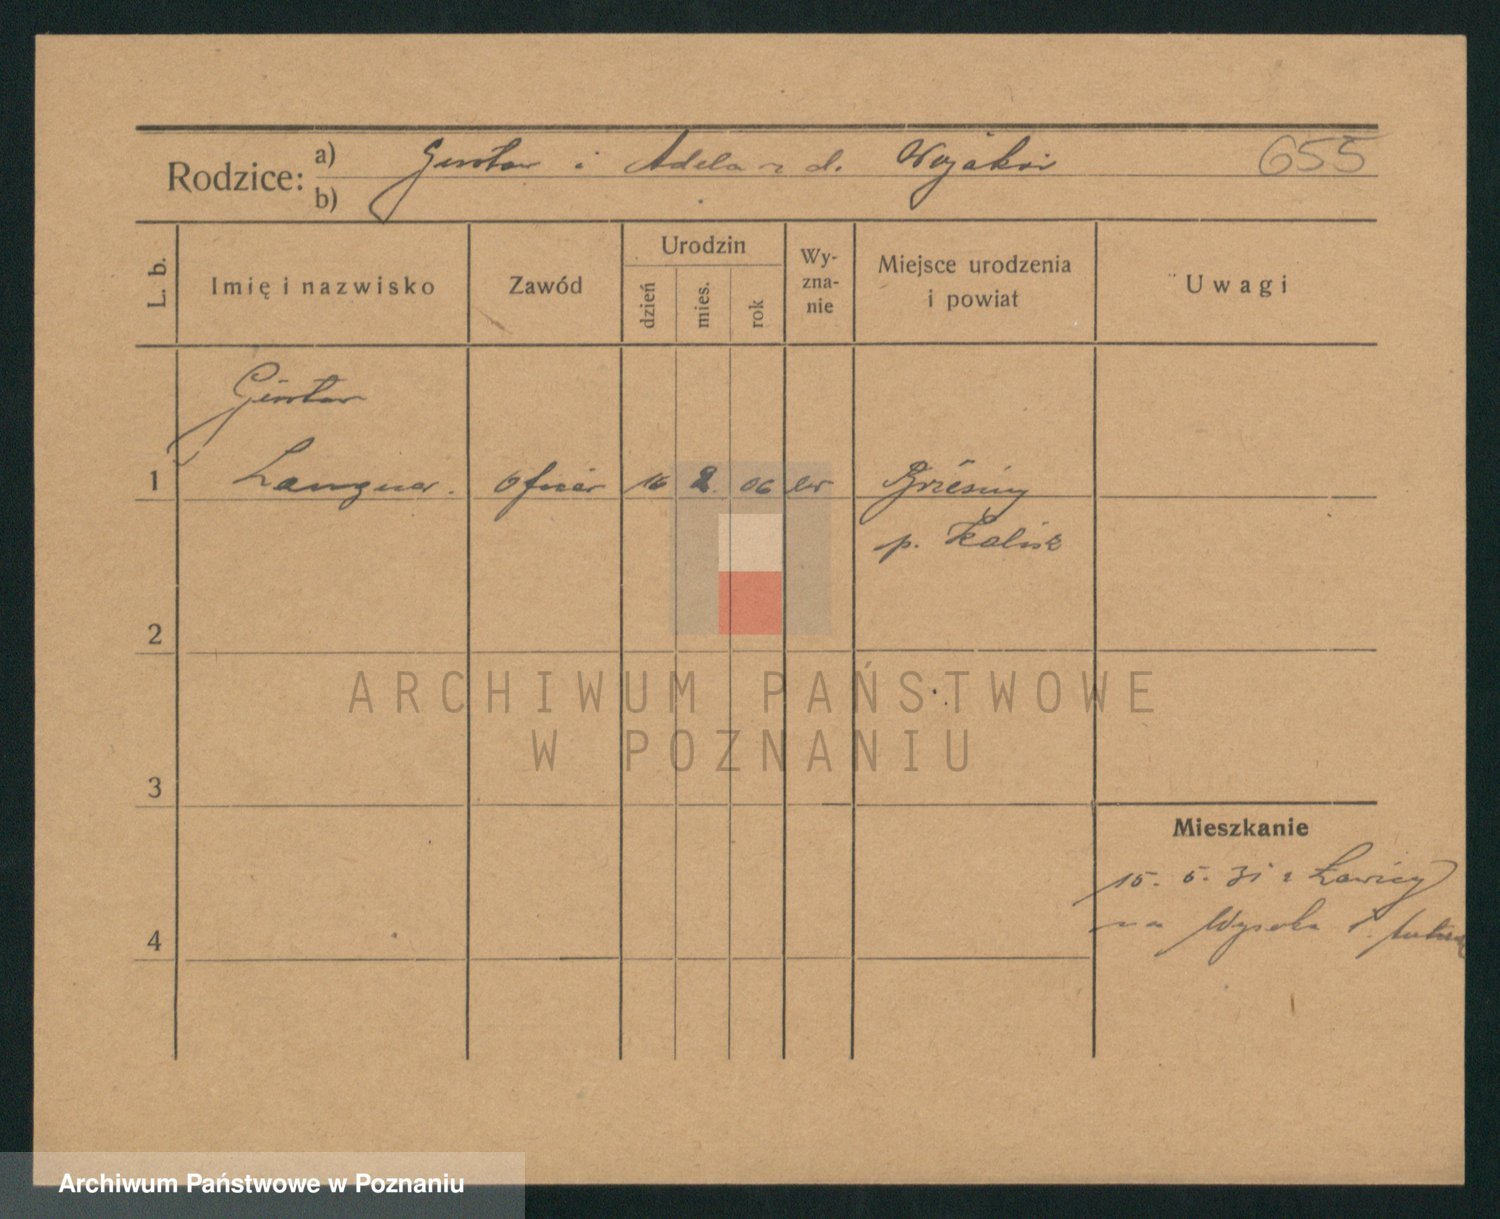 Rodzice: a) Gustaw i Adela z d. Wojakoi 655
b)
L. b. Imię i nazwisko Zawód Urodzin dzień mies. rok Wy-zna-nie Miejsce urodzenia i powiat Uwagi
Gustaw
1 Langner. oficer 16 2. 06 ew
p. Kalisz
2
ARCHIWUM PAŃSTWOWE
W POZNANIU
3
Mieszkanie
15. 5. 31 z Ławicy
na Wysoka
4
Archiwum Państwowe w Poznaniu